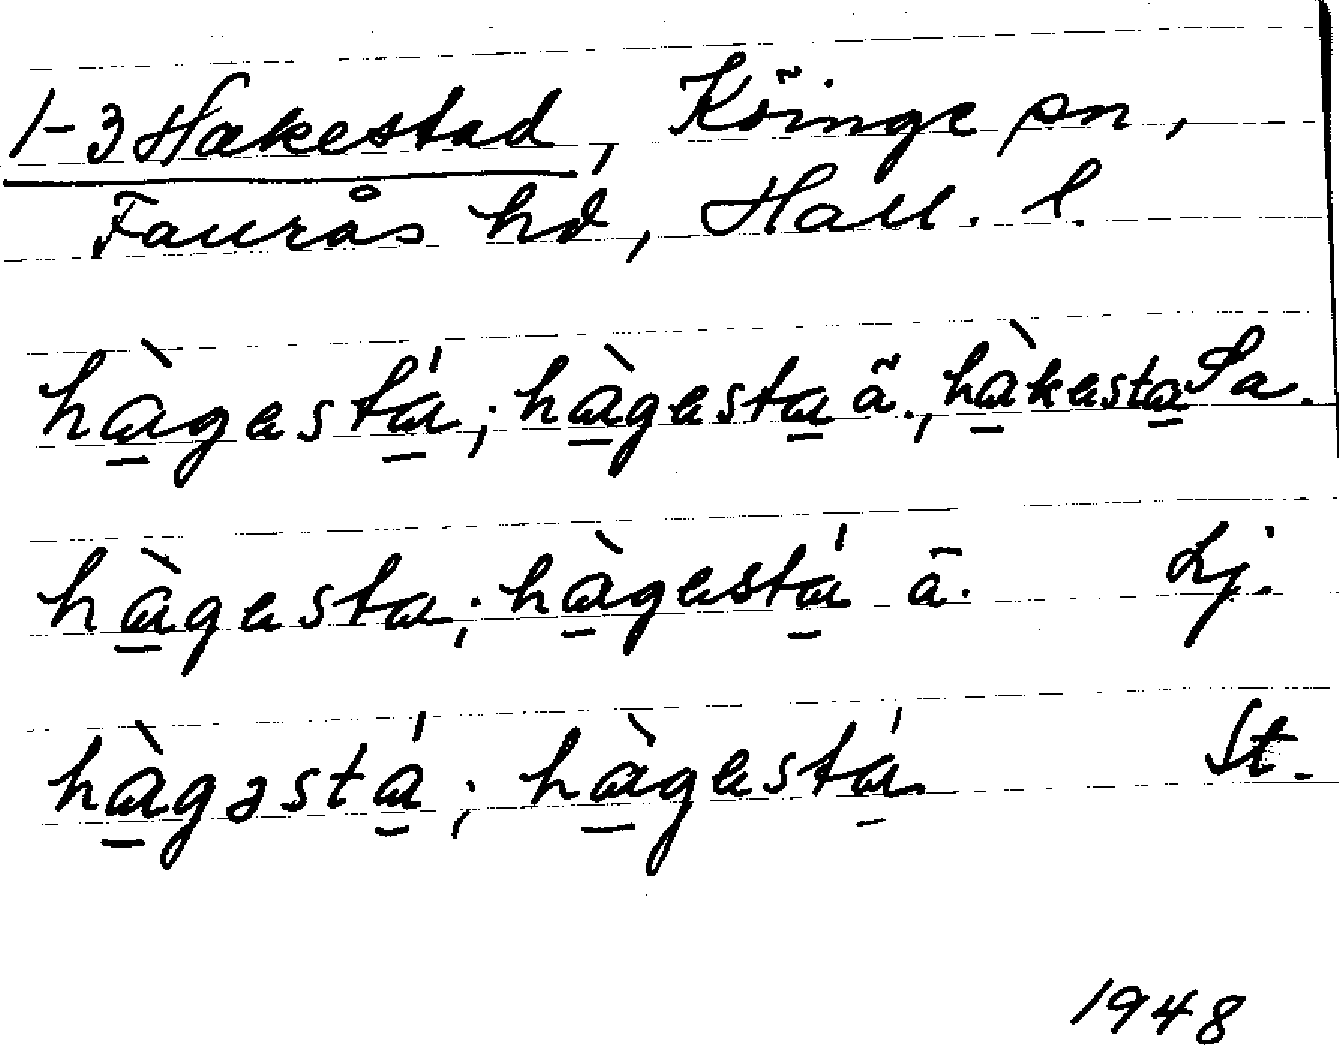 1-3 Hakestad, Köinge sn,
Faurås hd, Hall. l.
hàgestá; hàgesta ä., hàkesta Sa.
hàgesta; hàgestá ä. Lj.
hàgəstá; hàgestá. St.
1948